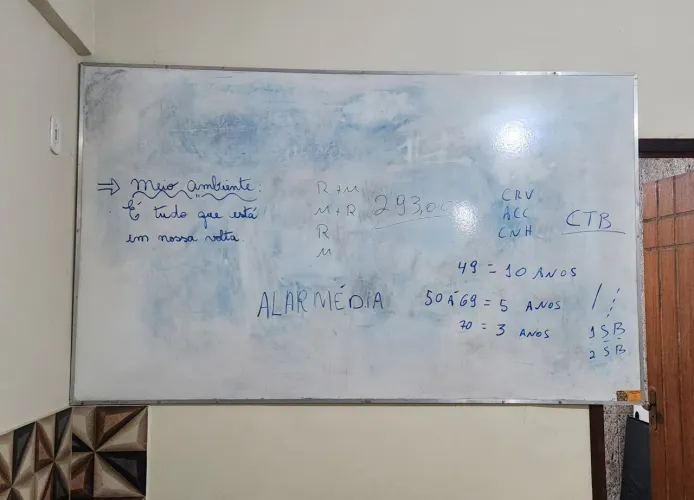 ⇒ Meio ambiente:
É tudo que está
em nossa volta.
R + M
M + R
R
M
293,0
CRV
ACC
CNH
CTB
49 = 10 ANOS
50 À 69 = 5 ANOS
70 = 3 ANOS
ALARMÉDIA
1 S B
2 S B